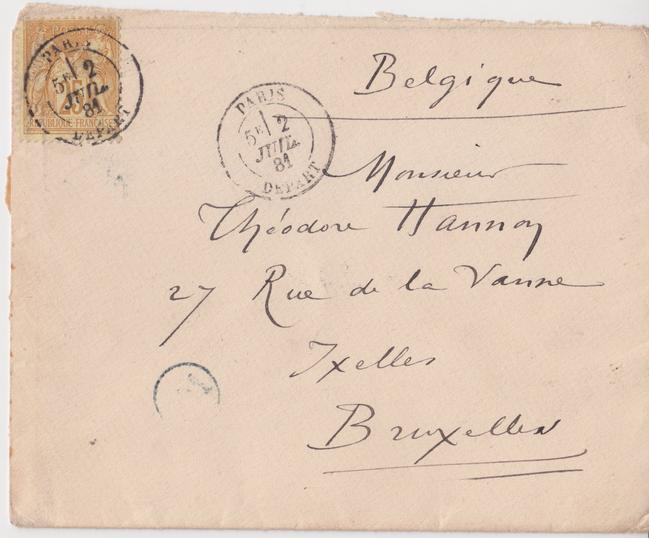 PARIS
5E 2
JUIL
81
DEPART
25
REPUBLIQUE FRANCAISE
PARIS
5E 2
JUIL
81
DEPART
Belgique
Monsieur
Théodore Hannon
27 Rue de la Vanne
Ixelles
Bruxelles